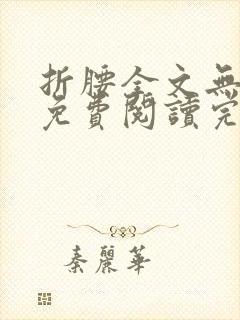 折腰全文無
免費閱讀完
秦麗華